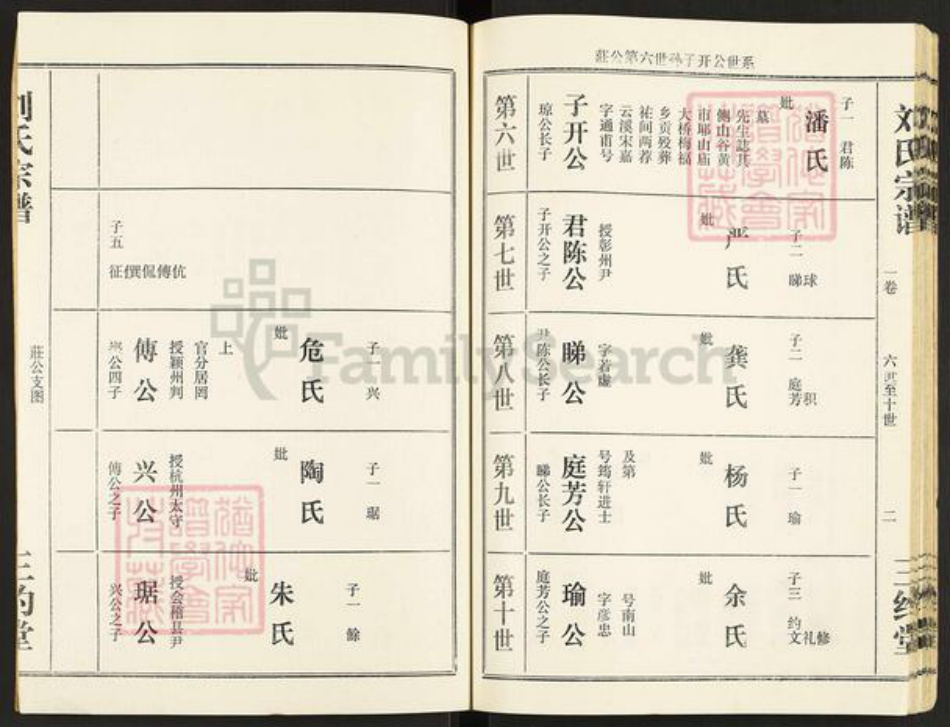 莊公第六世孙子开公世系
第六世
子开公
琼公长子
字通甫号
云溪宋嘉
祐间两荐
乡贡殁葬
大桥梅福
市耶山庙
侧山谷黄
先生誌其
墓
妣
潘氏
子一 君陈
第七世
君陈公
子开公之子
授彰州尹
妣
严氏
子二
球
睇
第八世
睇公
君陈公长子
字若虚
妣
龚氏
子二
积
庭芳
第九世
庭芳公
睇公长子
号筠轩进士
及第
妣
杨氏
子一 瑜
第十世
瑜公
庭芳公之子
字彦忠
号南山
妣
余氏
子三
修
礼
约文
刘氏宗谱
一卷
六世至十世
二
三约堂
子五
伉傅侃僎征
傅公
公四子
授颖州判
官分居罔
上
妣
危氏
子一 兴
兴公
傅公之子
授杭州太守
妣
陶氏
子一 琚
琚公
兴公之子
授会稽县尹
妣
朱氏
子一 餘
刘氏宗谱
莊公支图
三约堂
FamilySearch